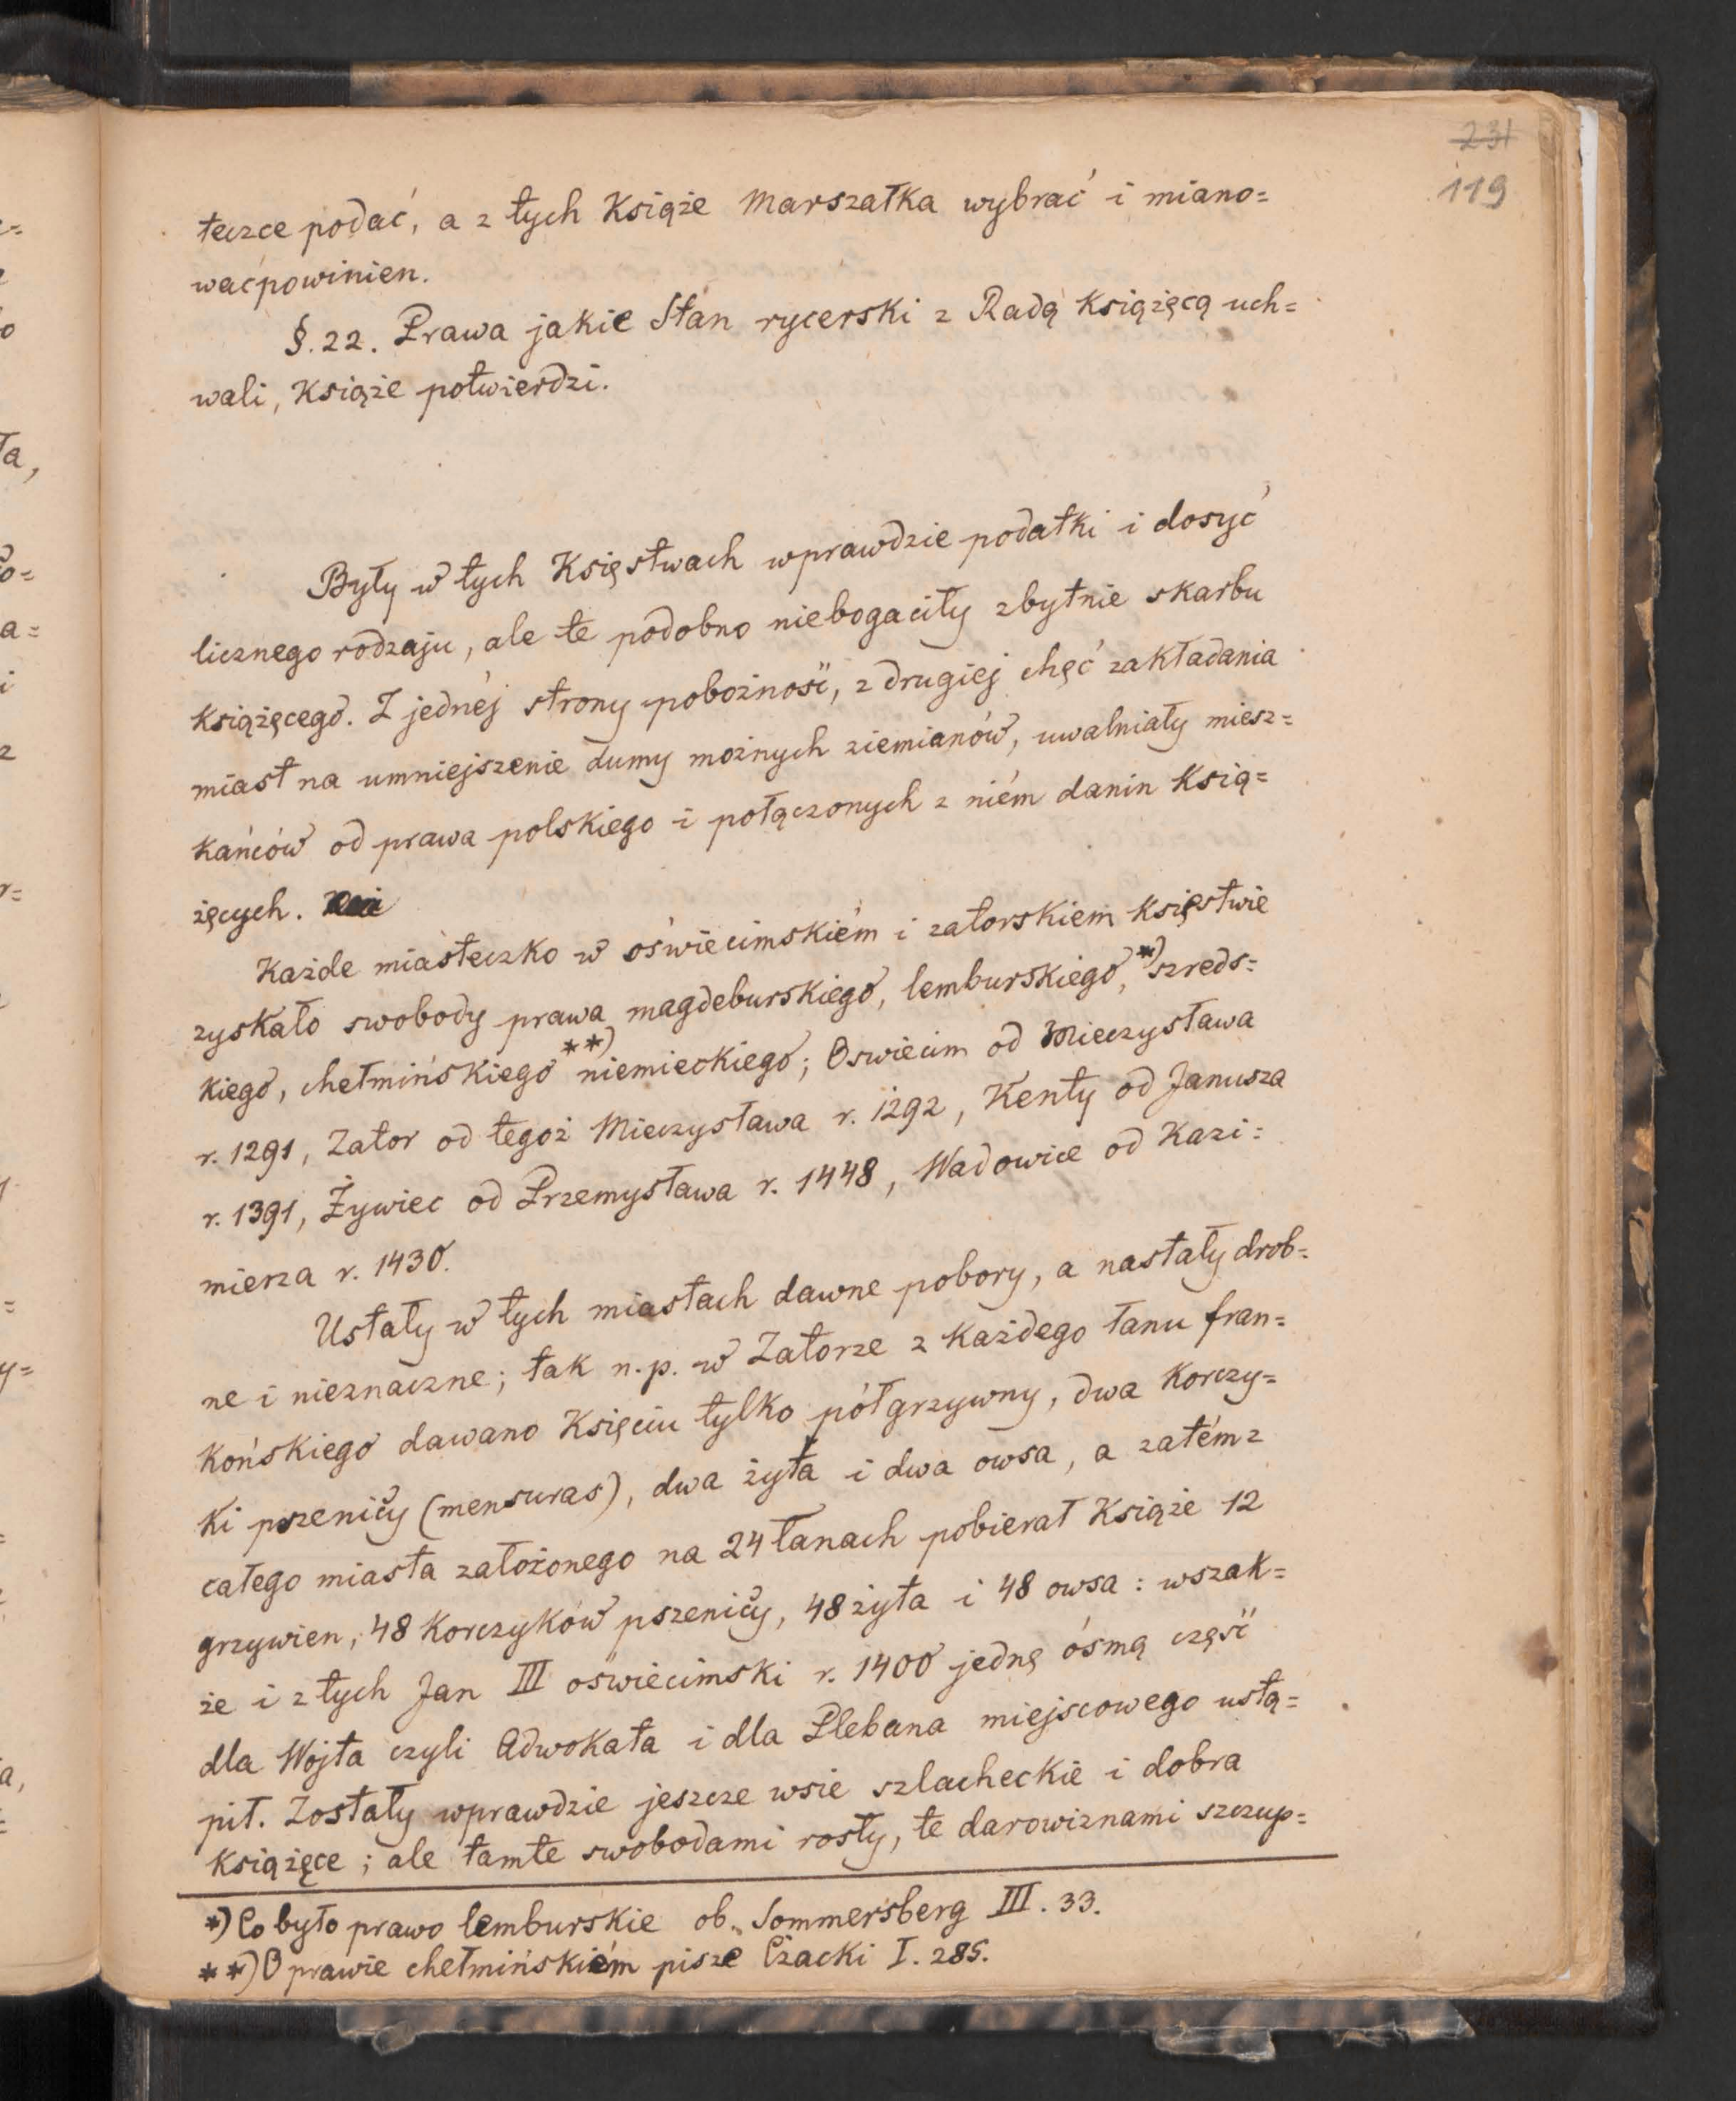 231
119
teczce podać, a z tych Książe Marszałka wybrać i miano=
wać powinien.
§. 22. Prawa jakie Stan rycerski z Radą Książęcą uch=
wali, Książe potwierdzi.
Były w tych Księstwach wprawdzie podatki i dosyć
licznego rodzaju, ale te podobno niebogaciły zbytnie skarbu
Książęcego. Z jednéj strony pobożność, z drugiej chęć zakładania
miast na umniejszenie dumy możnych ziemianów, uwalniały miesz=
kańców od prawa polskiego i połączonych z niém danin Ksią=
żęcych.
Każde miasteczko w oświecimskiém i zatorskiem Księstwie
zyskało swobody prawa magdeburskiego, lemburskiego,*) szreds=
kiego, chełmińskiego**) niemieckiego; Oswiecim od Mieczysława
r. 1291, Zator od tegoż Mieczysława r. 1292, Kenty od Janusza
r. 1391, Żywiec od Przemysława r. 1448, Wadowice od Kazi=
mierza r. 1430.
Ustały w tych miastach dawne pobory, a nastały drob=
ne i nieznaczne; tak n.p. w Zatorze z każdego łanu fran=
końskiego dawano Księciu tylko półgrzywny, dwa korczy=
ki pszenicy (mensuras), dwa żyta i dwa owsa, a zatém z
całego miasta założonego na 24 łanach pobierał Książe 12
grzywien, 48 korczyków pszenicy, 48 żyta i 48 owsa : wszak=
że i z tych Jan III oświecimski r. 1400 jednę ósmą część
dla Wójta czyli Adwokata i dla Plebana miejscowego ustą=
pił. Zostały wprawdzie jeszcze wsie szlacheckie i dobra
Książęce ; ale tamte swobodami rosły, te darowiznami szczup=
*) Co było prawo lemburskie ob. Sommersberg III. 33.
**) O prawie chełmińskiém pisze Czacki I. 285.